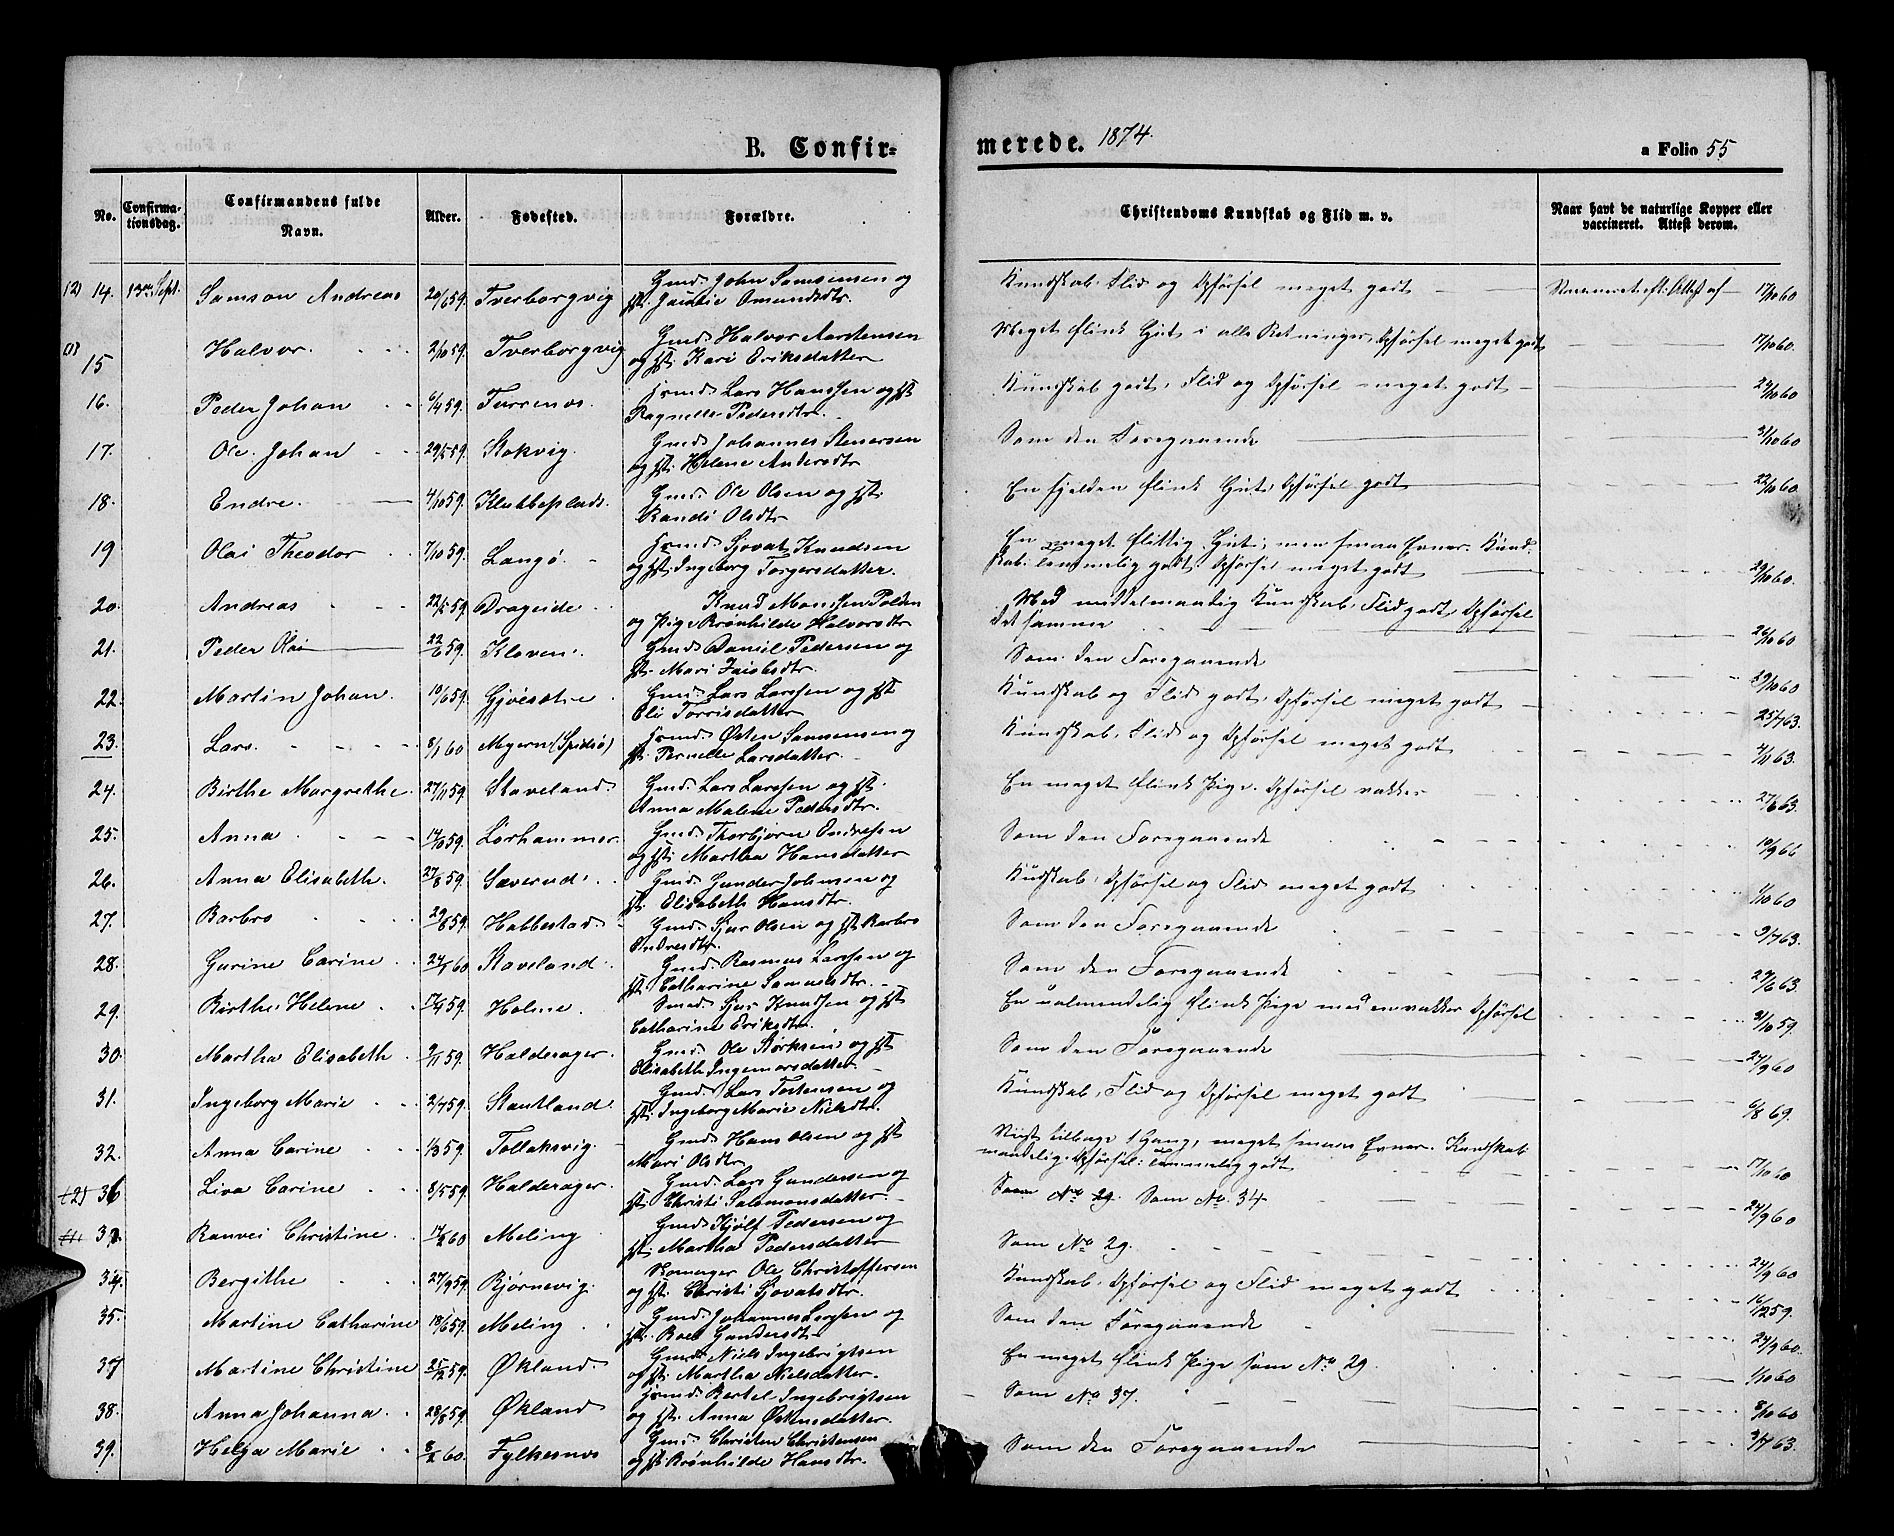 B. Confir=
merede. 1874.
a Folio 55
No.
Confirma-
tionsdag.
Confirmandens fulde
Navn.
Alder.
Fødested.
Forældre.
Christendoms Kundskab og Flid m. v.
Naar havt de naturlige Kopper eller
vaccineret. Attest derom.
(2) 14. 13de Sept. Samson Andreas 20/6 59. Tverborgvig Gmd. John Samsonsen og
Omundsdtr.
Kundskab, Flid og Opførsel meget godt Vaccineret eft. Attest af 17/10 60
15 Halvor. 2/10 59. Tverborgvig Gmd. Halvor Aartensen
og Hst. Kari Eriksdatter
Meget flink Gut i alle Retninger, Opførsel meget godt 17/10 60.
16. Peder Johan 6/4 59. Turrenes. Lars Hanssen og Hst
Ragnelle Pedersdtr.
Kundskab godt, Flid og Opførsel meget godt 29/10 60
17. Ole Johan 29/5 59. Stokvig. Gmd. Johannes Stenersen
og Hst. Helene Andersdtr
Som den Foregaaende 31/10 60
18. Endre. 4/10 59. Klubbeplads. Gmd. Ole Olsen og Hst.
Randi Olsdtr
En sjelden flink Gut, Opførsel godt 22/10 60.
19 Olai Theodor 7/10 59. Langø. Sjovat Knudsen
og Hst. Ingeborg Torgersdatter.
En meget flittig Gut, men smaa Evner. Kund-
skab: temmelig godt. Opførsel meget godt 29/10 60.
20. Andreas 22/5 59. Drageide Knud Monssen Polden
og Pige Brønhilde Halvorsdtr
Med middelmaadig Kundskab, Flid godt, Opførsel
det samme 26/10 60
21. Peder Olai 22/6 59. Kloven. Gmd. Daniel Pedersen og
Hst. Mari
Som den Foregaaende 29/10 60
22. Martin Johan. 10/6 59. Gjøsætre Gmd. Lars Larssen og Hst
Eli Torrisdatter
Kundskab og Flid godt, Opførsel meget godt 25/7 63.
23. Lars. 8/1 60 (Spidsø) Østen Samsonsen og
Hst. Pernelle Larsdatter.
Kundskab, Flid og Opførsel meget godt 4/11 63.
24. Birthe Margrethe. 27/11 59. Staveland. Gmd. Lars Larssen og Hst.
Anna Malene Pedersdtr.
En meget flink Pige. Opførsel vakker 27/6 63.
25. Anna 14/ 59. Lørhammer. Gmd. Thorbjørn Endresen
og Hst. Martha Hansdatter
Som den Foregaaende 19/9 66
26. Anna Elisabeth. 27/8 59. Sæverud. Gmd. Gunder Johnsen og
Hst. Elisabeth Hansdtr.
Kudskab, Opførsel og Flid meget godt 1/10 60
27. Barbro 29/8 59. Habbestad. Gmd. Sjur Olsen og Hst Barbro
Endresdtr.
Som den Foregaaende 9/7 63.
28. Gurine Carine 24/1 60 Staveland. Gmd. Rasmus Larssen og
Hst Catharine Samnesdtr.
Som den Foregaaende 29/6 63.
29. Birthe Helene 17/9 59. Holme. Sjur Knudsen og Hst
Catharine Eriksdtr.
En ualmindelig flink Pige med en vakker Opførsel 31/10 59.
30. Martha Elisabeth 9/11 59. Halderager. Gmd. Ole Størksen, og Hst
Elisabeth Ingemorsdatter
Som den Foregaaende 24/9 60
31. Ingeborg Marie 2/7 59. Stautland. Gmd. Lars Tostensen og
Hst. Ingeborg Marie Nielsdtr.
Kundskab, Flid og Opførsel meget godt 6/8 69.
32. Anna Carine 1/3 59. Tollaksvig. Gmd. Hans Olsen og Hst
Mari Olsdtr
Viist tilbage 1 Gang, meget smaa Evner. Kundskab
maadelig. Opførsel: temmelig godt 17/10 60
(2) 36 Liva Carine 3/5 59. Halderager. Gmd. Lars Gundersen og
Hst. Christi Salomonsdatter.
Som No. 29. Som No. 34 24/9 60
Ranvei Christine. 60 Meling Gmd. Kjølf Pedersen og
Hst. Martha Pedersdatter
Som No 29. 24/9 60
34. Bergithe 27/9 59. Bjørnevig. Ole Christoffersen
og Hst. Christi Sjovatsdtr.
Kundskab, Opførsel og Flid meget godt 16/12 59.
35. Martine Catharine 18/6 59. Meling Gmd. Johannes Larssen og
Hst. Roel Gundersdtr
Som den Foregaaende 24/9 60.
37 Martine Christine 25/12 59. Økland. Gmd. Niels Ingebrigtsen
og Hst. Martha Nielsdatter.
En meget flink Pige som No. 29. 1/10 60
38. Anna Johanna. 28/8 59. Økland Bertel Ingebrigtsen
og Hst. Anna Østensdatter.
Som No 37. 8/10 60
39. Helga Marie 8/2 60. Fylkesnes Gmd. Christen Christensen
og Hst. Brønhilde Hansdtr.
Som den Foregaaende 3/7 63.